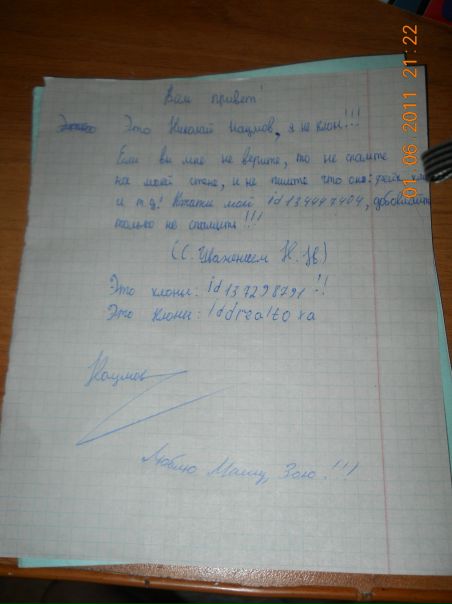 Вам привет!
Это Николай Наумов, я не клон!!!
Если вы мне не верите, то не спамте
на моей стене, и не пишите что она: фейк,
и т.д! Кстати мой id134447404, добовляйте
только не спамить!!!
(С. Уважением Н. Н)
Это клоны: id137298791!!
Это клоны: Iddrealtoxa
Наумов
Люблю Машу, Зою!!!
01.06.2011 21:22